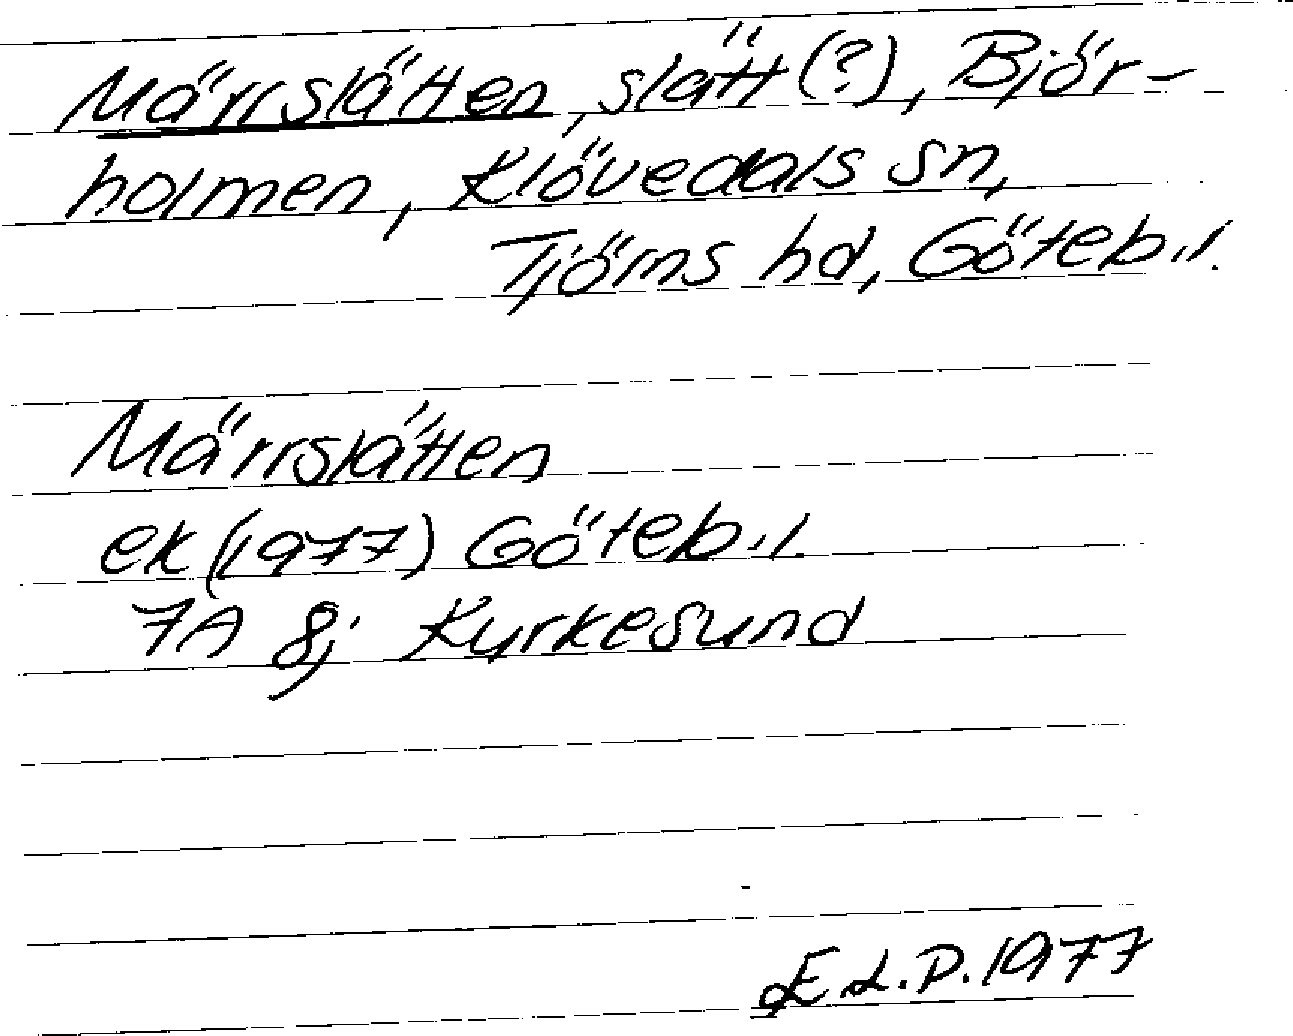 Märrslätten, slätt (?), Björ-
holmen, Klövedals sn,
Tjörns hd, Göteb.l.
Märrslätten
ek (1977) Göteb.l.
7A 8j Kyrkesund
E.L.P. 1977